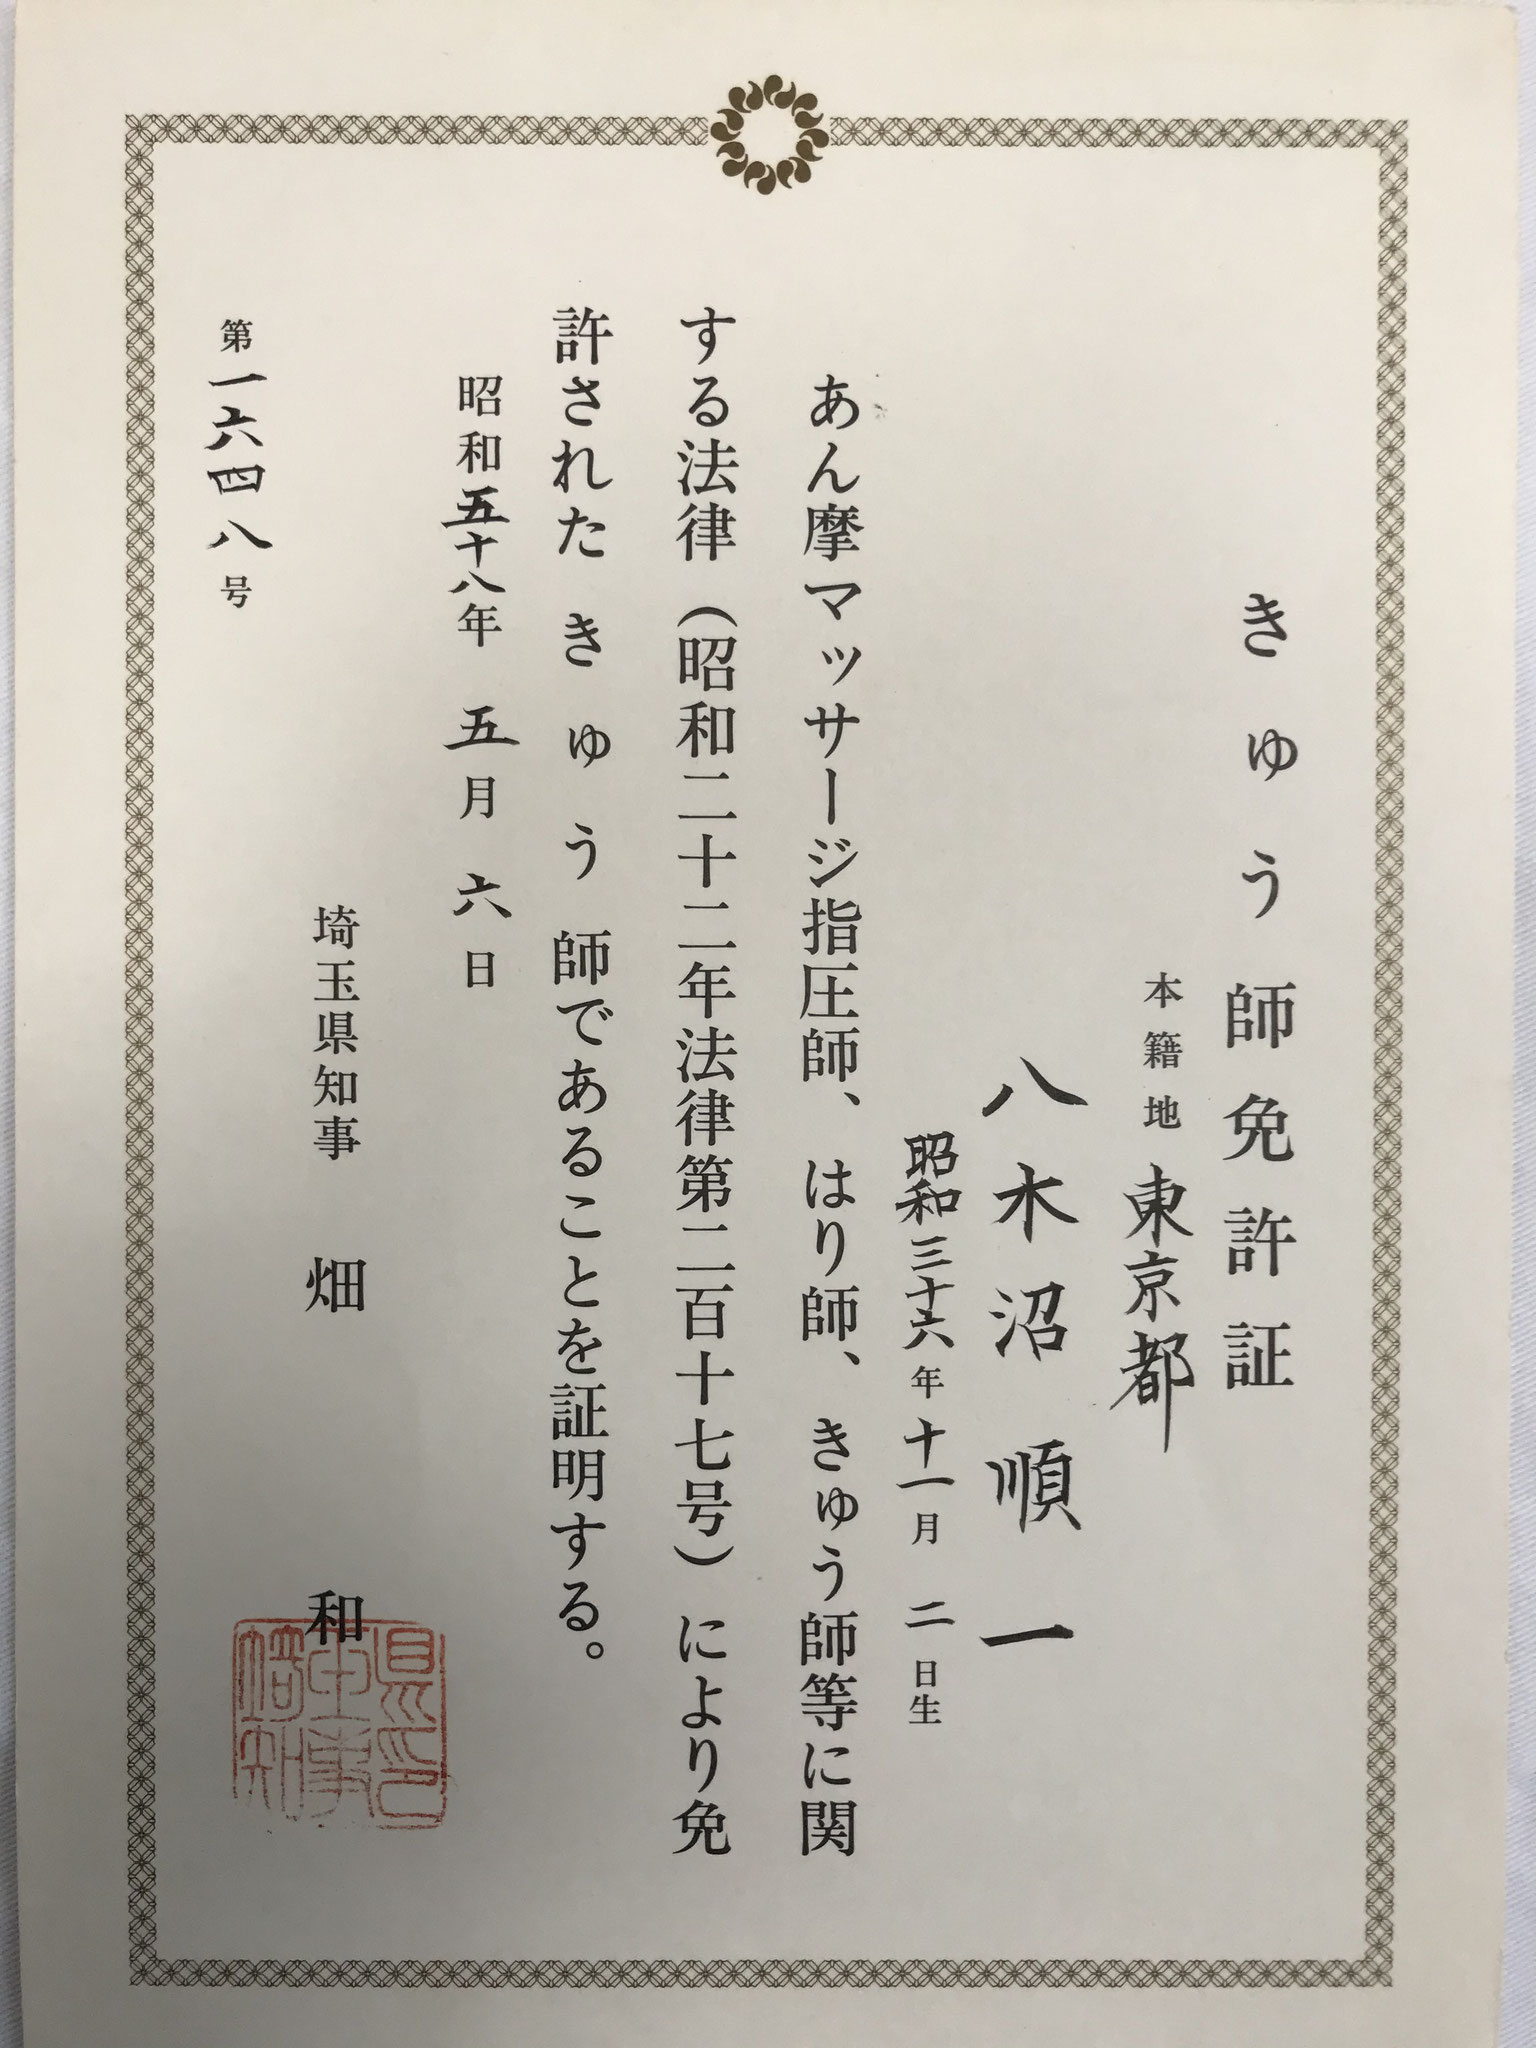 きゅう師免許証
本籍地 東京都
八木沼順一
昭和三十六年十一月二日生
あん摩マッサージ指圧師、はり師、きゅう師等に関
する法律（昭和二十二年法律第二百十七号）により免
許されたきゅう師であることを証明する。
昭和五十八年五月六日
埼玉県知事 畑 和
第一六四八号
埼玉県知事印